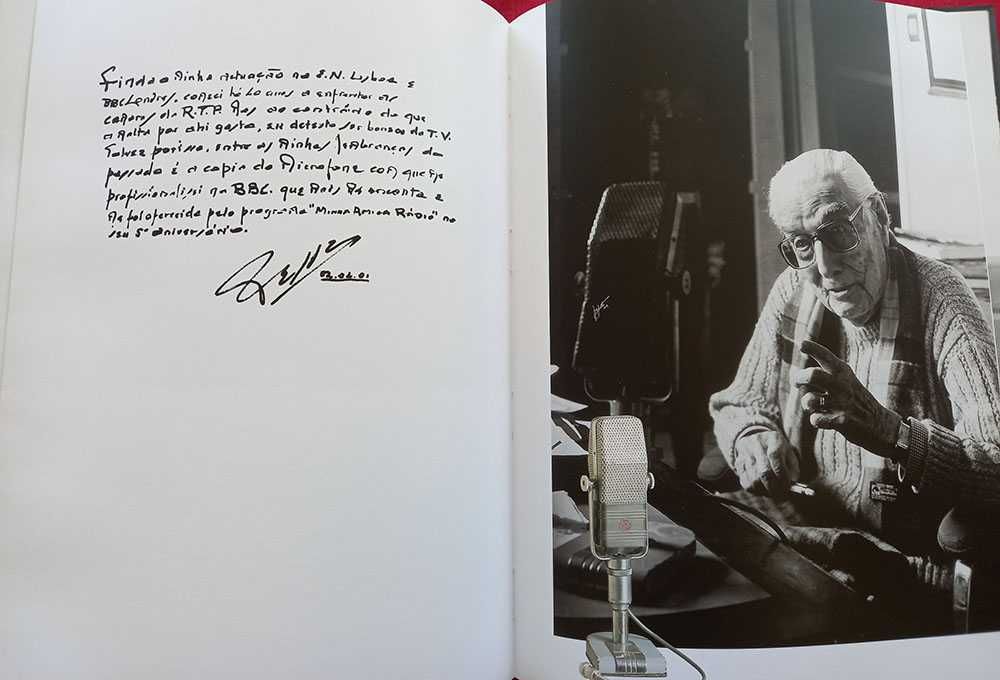 Finda a Minha actuação na E.N. Lisboa e
BBC Londres, comecei há 40 anos a enfrentar as
camaras da R.T.P. Mas ao contrário do que
a Malta por ahi gosta, eu detesto ser boneco da T.V.
Talvez por isso, entre as Minhas lembranças do
passado é a copia do Microfone com que me
profissionalisei na BBC. que Mais Me encanta e
Me foi oferecida pelo programa "Minha Amiga Rádio" no
seu 5º aniversário.
02.06.01